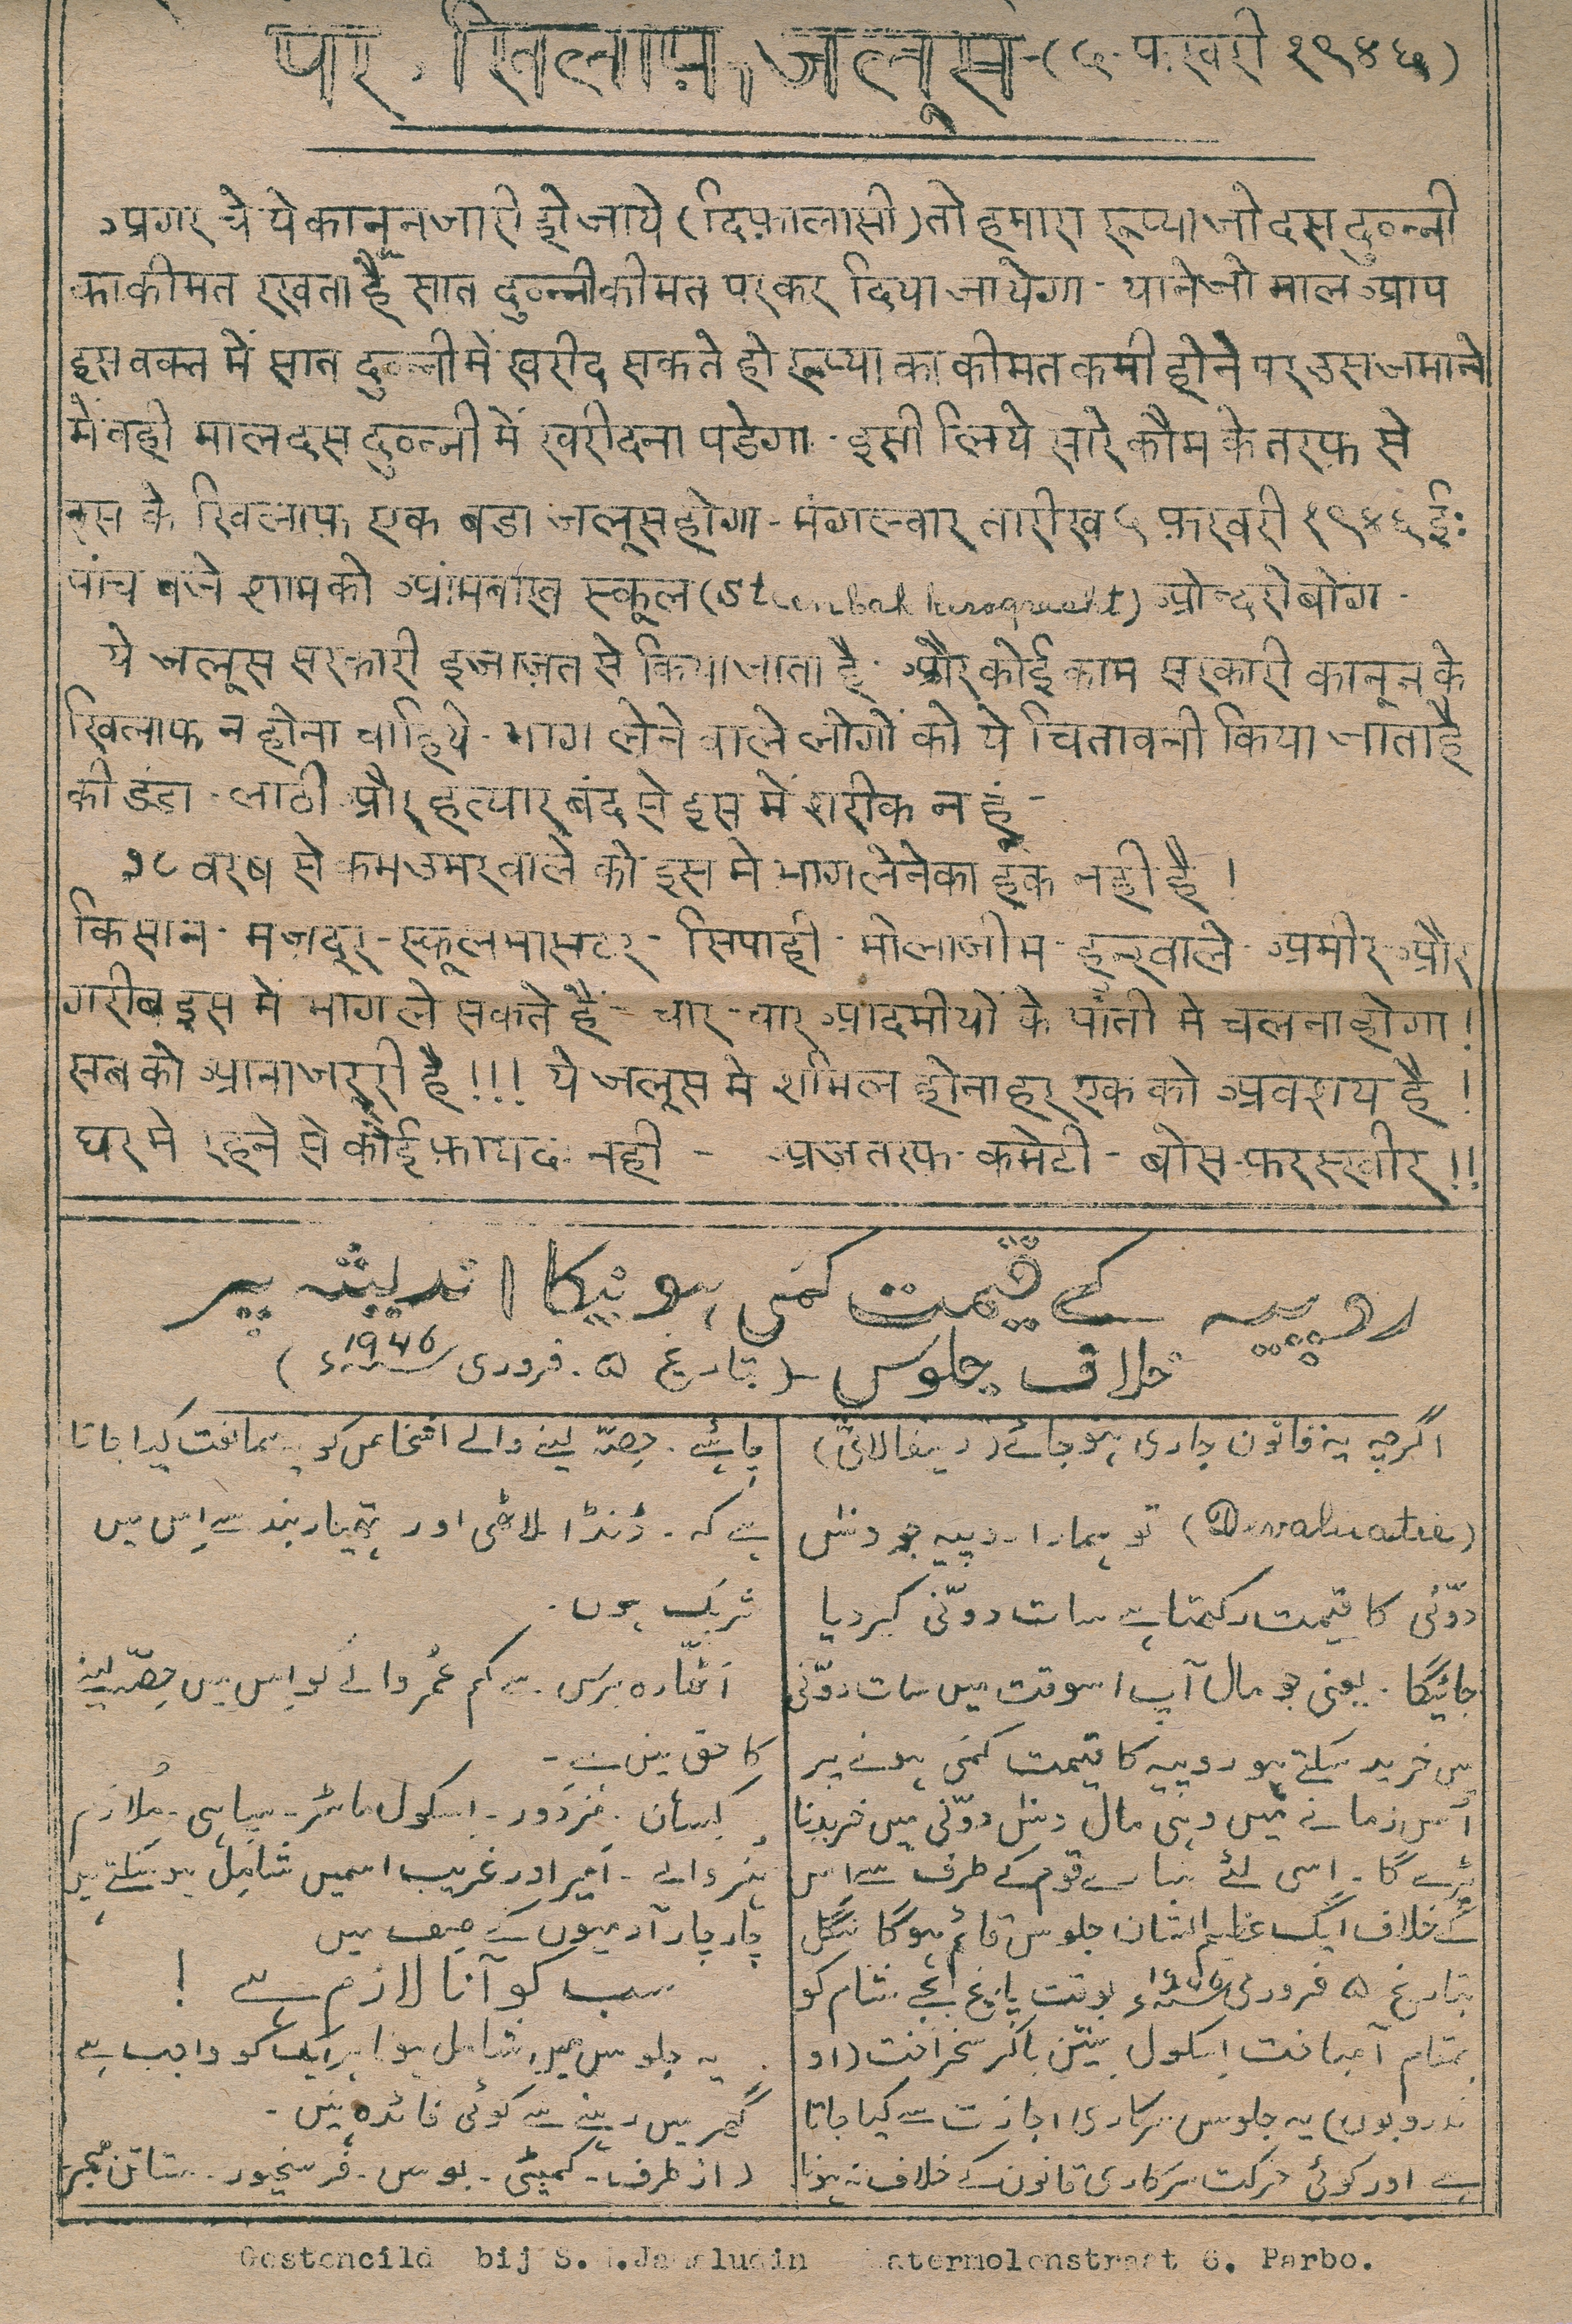 पर खिलाफ़ जलूस - (५ फ़रवरी १९४६)
अगर चे ये कानून जारी हो जाये (दिफ़ालासी) तो हमारा रूप्या जो दस दुवन्नी
का कीमत रखता है सात दुवन्नी कीमत पर कर दिया जायेगा - याने जो माल आप
इस वक्त में सात दुवन्नी में खरीद सकते हो रूप्या का कीमत कमी होने पर उस जमाने
में वही माल दस दुवन्नी में खरीदना पडेगा - इसी लिये सारे कौम के तरफ़ से
इस के खिलाफ़ एक बडा जलूस होगा - मंगलवार तारीख ५ फ़रवरी १९४६ ई:
पांच बजे शाम को स्कूल ओन्दरोबोंग -
ये जलूस सरकारी इजाज़त से किया जाता है - और कोई काम सरकारी कानून के
खिलाफ न होना चाहिये - भाग लेने वाले लोगों को ये चितावनी किया जाता है
की डंडा - लाठी और हत्यार बंद से इस में शरीक न हूं -
१८ वरष से कम उमर वाले को इस मे भाग लेने का हक नही है !
किसान - मजदूर - स्कूल मासटर - सिपाही - मोलाजीम - हुन्रवाले - अमीर और
गरीब इस में भाग ले सकते हैं - चार - चार आदमीयों के पांती मे चलना होगा !
सब को आना जरूरी है !!! ये जलूस मे शामिल होना हर एक को अवशय है !
घर मे रहने से कोई फ़ायद नही - अज तरफ - कमेटी - बोस - फरस्खीर !!
روپیہ کے قیمت کمی ہونیکا اندیشہ پر
خلاف جلوس - (بتاریخ ۵ - فروری 1946ء)
اگرچہ یہ قانون جاری ہو جائے (دیفالاتی)
(Devaluatie) تو ہمارا روپیہ جو دس
دوّنی کا قیمت رکھتا ہے سات دوّنی کر دیا
جائیگا - یعنی جو مال آپ اسوقت میں سات دوّنی
میں خرید سکتے ہو روپیہ کا قیمت کمی ہونے پر
اُس زمانے میں وہی مال دس دوّنی میں خریدنا
پڑے گا - اسی لئے سارے قوم کے طرف سے اس
کے خلاف ایک عظیم الشان جلوس قائم ہوگا منگل
بتاریخ ۵ فروری 1946ء بوقت پانچ بجے شام کو
بمقام اسکول (او
ندروبون) یہ جلوس سرکاری اجازت سے کیا جاتا
ہے اور کوئی حرکت سرکاری قانون کے خلاف نہ ہونا
چاہئے - حصّہ لینے والے اشخاص کو یہ ممانعت کیا جاتا
ہے کہ - ڈنڈا لاٹھی اور ہتھیار بند سے اِس میں
شریک ہوں -
اٹھّارہ برس سے کم عُمر والے کو اِس میں حصّہ لینے
کا حق نہیں ہے -
کسان - مزدور - اسکول ماسٹر - سپاہی - مُلازم
ہنر والے - امیر اور غریب اسمیں شامِل ہو سکتے ہیں
چار چار آدمیوں کے صف میں
سب کو آنا لازم ہے !
یہ جلوس میں شامل ہونا ہر ایک کو واجب ہے
گھر میں رہنے سے کوئی فائدہ نہیں -
(از طرف - کمیٹی - بوس - فرسخیور -
Gestencild bij S. Parbo.